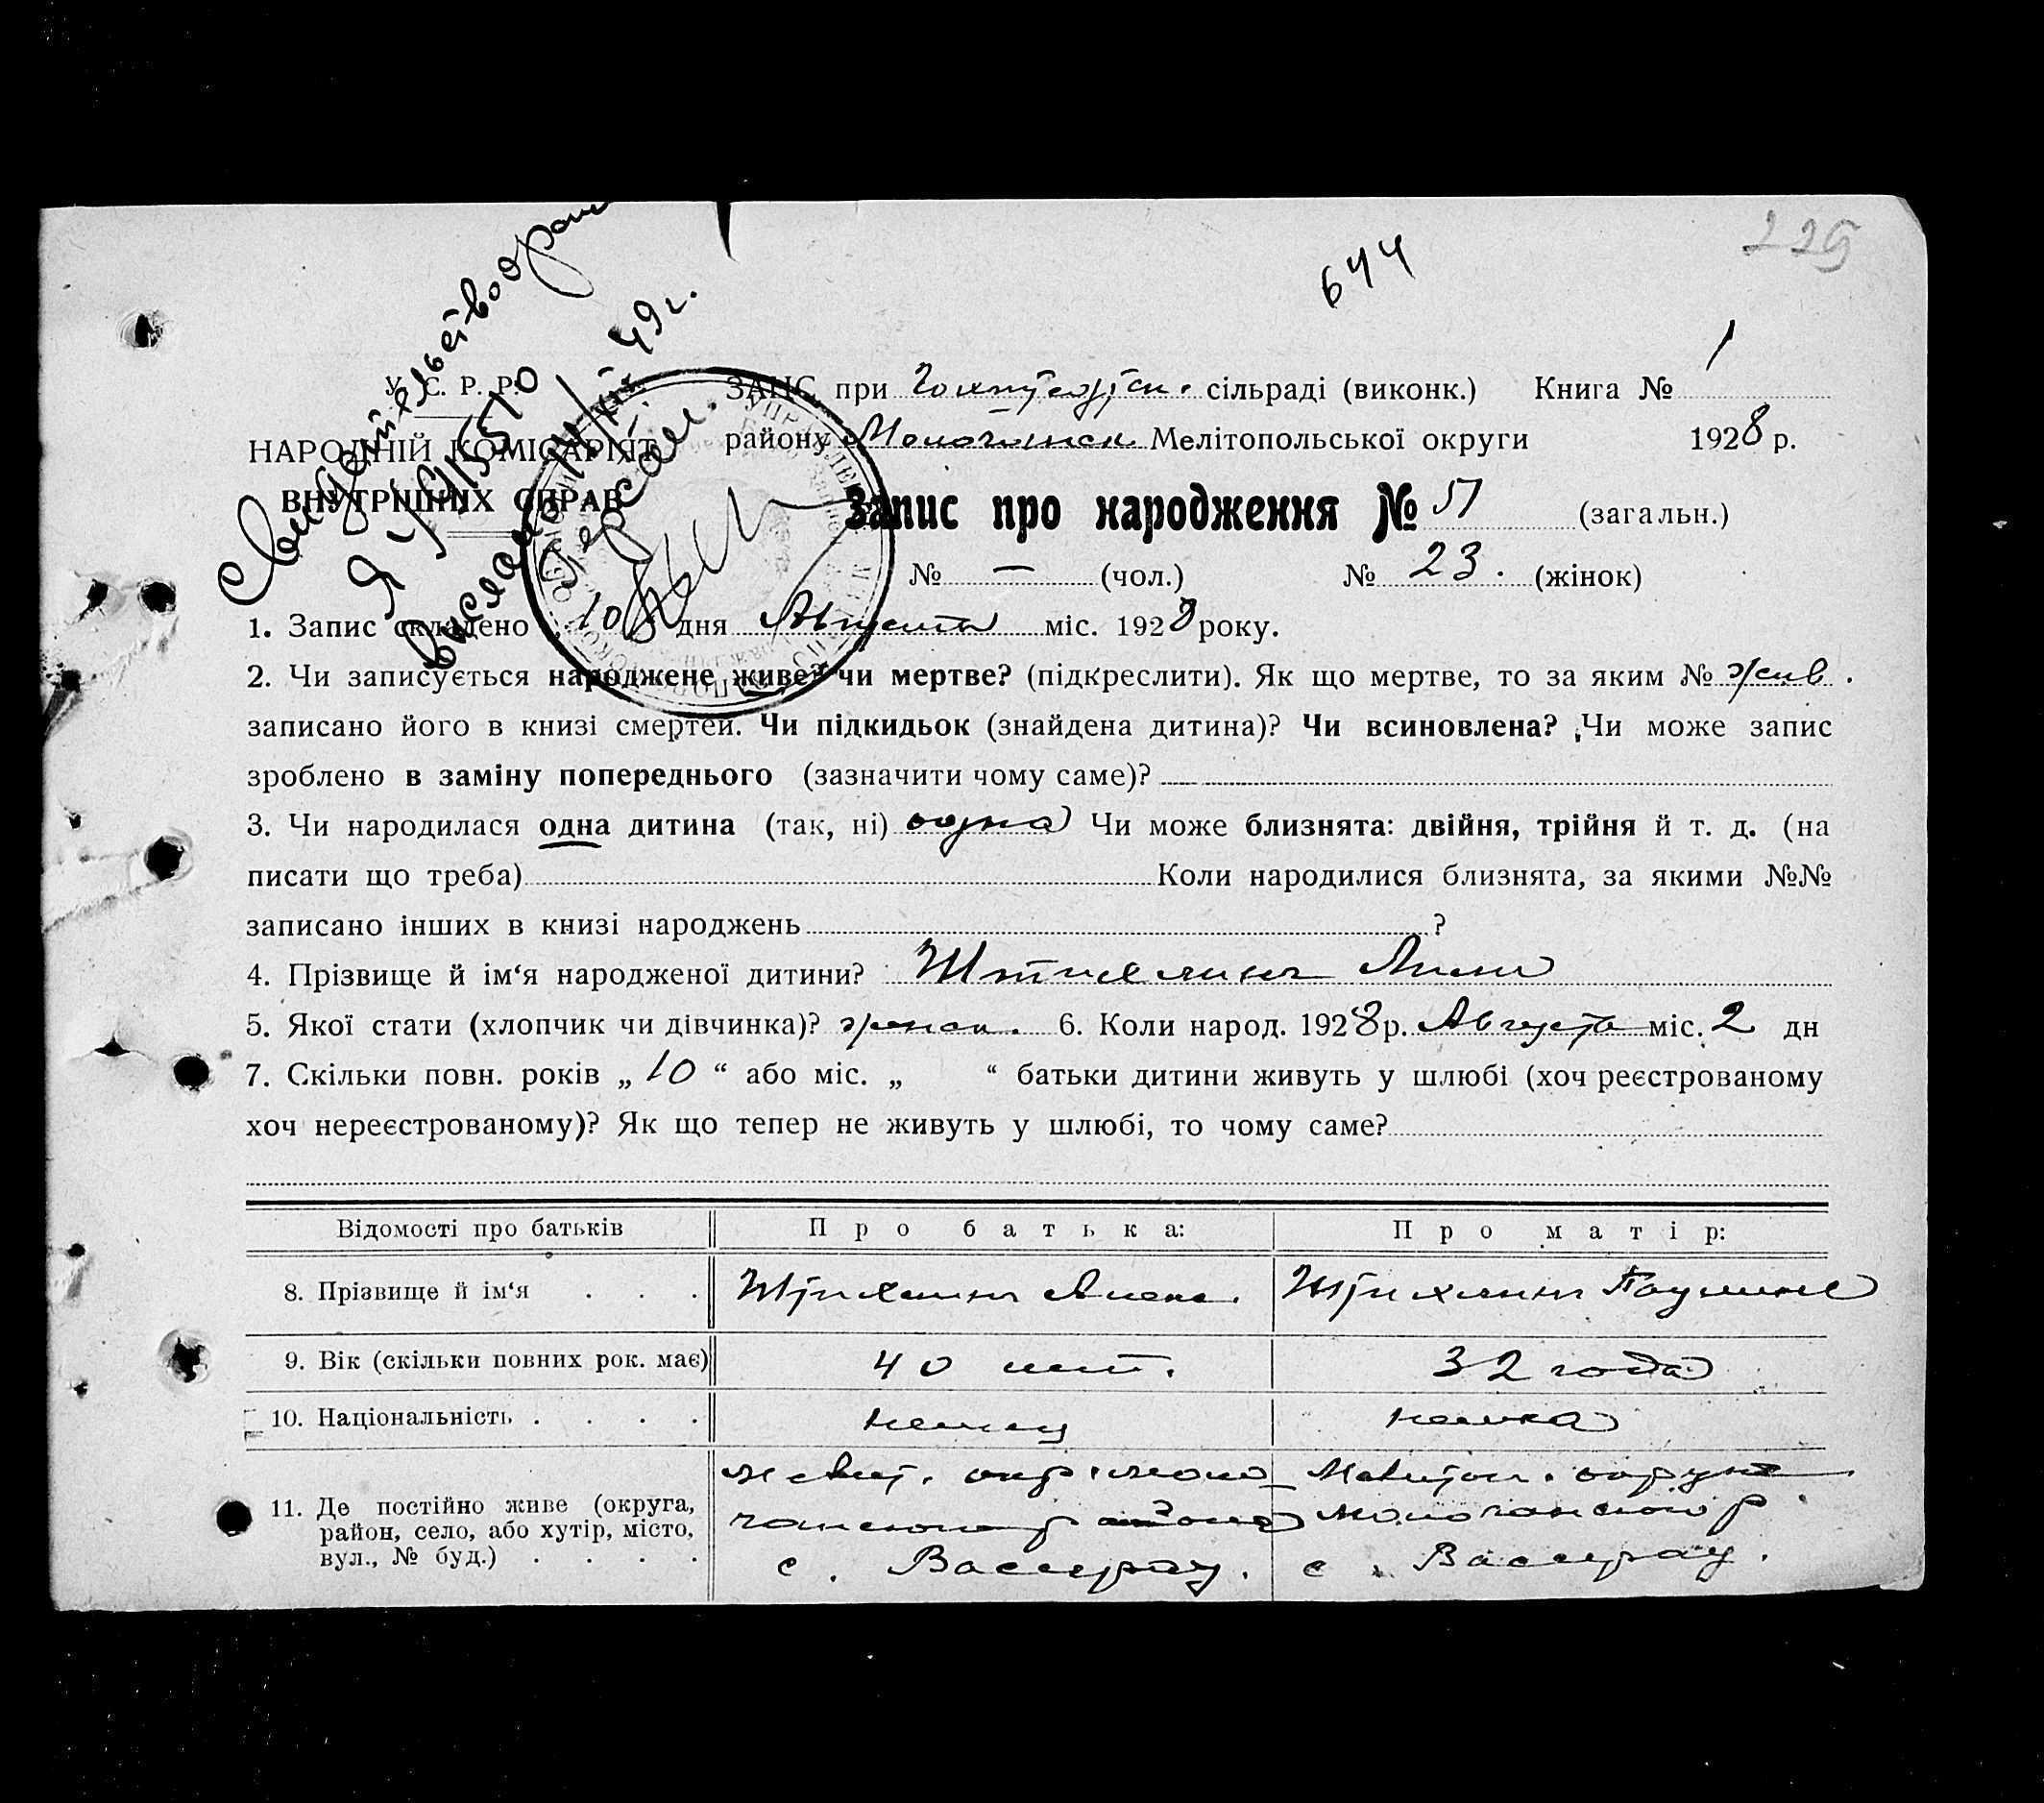 229
644
Свидетельство
Я У 915510
Выслано 14/XII 49 г.
У. С. Р. Р.
НАРОДНІЙ КОМІСАРІЯТ
ВНУТРІШНІХ СПРАВ
ЗАГС при сільраді (виконк.) Книга № 1
району Молочанск Мелітопольської округи 1928 р.
Запис про народження № 51 (загальн.)
№ — (чол.) № 23. (жінок)
1. Запис складено „10“ дня Августа міс. 1928 року.
2. Чи записується народжене живе? чи мертве? (підкреслити). Як що мертве, то за яким № жив.
записано його в книзі смертей. Чи підкидьок (знайдена дитина)? Чи всиновлена? Чи може запис
зроблено в заміну попереднього (зазначити чому саме)?
3. Чи народилася одна дитина (так, ні) одна Чи може близнята: двійня, трійня й т. д. (на
писати що треба) Коли народилися близнята, за якими №№
записано інших в книзі народжень ?
4. Прізвище й ім‘я народженої дитини? Штихлинг
5. Якої стати (хлопчик чи дівчинка)? женск. 6. Коли народ. 1928 р. Августа міс. 2 дн
7. Скільки повн. років „ 10 “ або міс. „ “ батьки дитини живуть у шлюбі (хоч реєстрованому
хоч нереєстрованому)? Як що тепер не живуть у шлюбі, то чому саме?
Відомості про батьків Про батька: Про матір:
8. Прізвище й ім‘я . . . Штихлинг Штихлинг Паулине
9. Вік (скільки повних рок. має) 40 лет. 32 года
10. Національність . . . . немец немка
11. Де постійно живе (округа, Мелит. окр. моло Мелитоп. округа
район, село, або хутір, місто, чанского района Молочанского р
вул., № буд.) . . . . с. Вассерау. с. Вассерау.